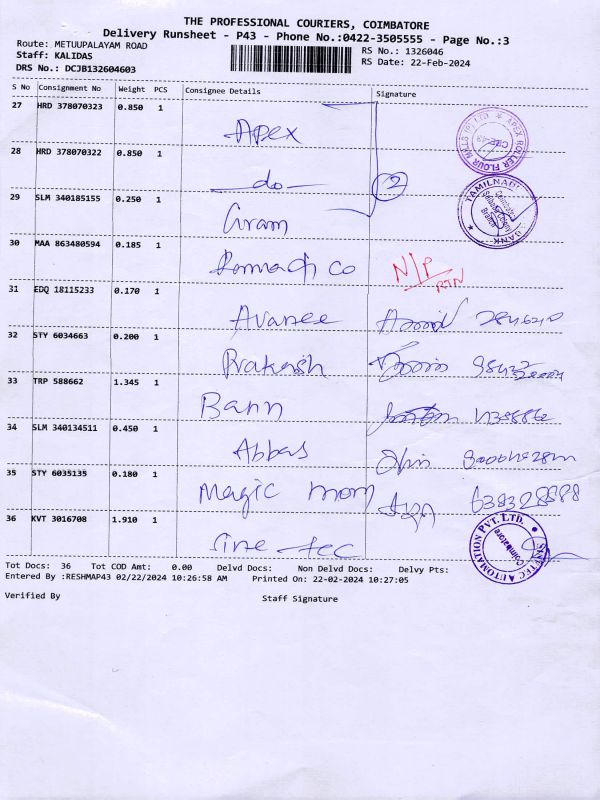 THE PROFESSIONAL COURIERS, COIMBATORE
Delivery Runsheet - P43 - Phone No.:0422-3505555 - Page No.:3
Route: METUUPALAYAM ROAD
RS No.: 1326046
Staff: KALIDAS
RS Date: 22-Feb-2024
DRS No.: DCJB132604603
S No Consignment No Weight PCS Consignee Details Signature
27 HRD 378070323 0.850 1 Apex
APEX ROLLER FLOUR MILLS (P) LTD
28 HRD 378070322 0.850 1 do 2
TAMILNAD BANK
29 SLM 340185155 0.250 1
30 MAA 863480594 0.185 1 N/P
RTN
31 EDQ 18115233 0.170 1 Avanee
32 STY 6034663 0.200 1 Prakash
33 TRP 588662 1.345 1 Bann
34 SLM 340134511 0.450 1 Abbas
35 STY 6035135 0.180 1 Magic mom
36 KVT 3016708 1.910 1 Sine tec
SINETEC AUTOMATION PVT. LTD.
Coimbatore
Tot Docs: 36 Tot COD Amt: 0.00 Delvd Docs: Non Delvd Docs: Delvy Pts:
Entered By :RESHMAP43 02/22/2024 10:26:58 AM Printed On: 22-02-2024 10:27:05
Verified By Staff Signature